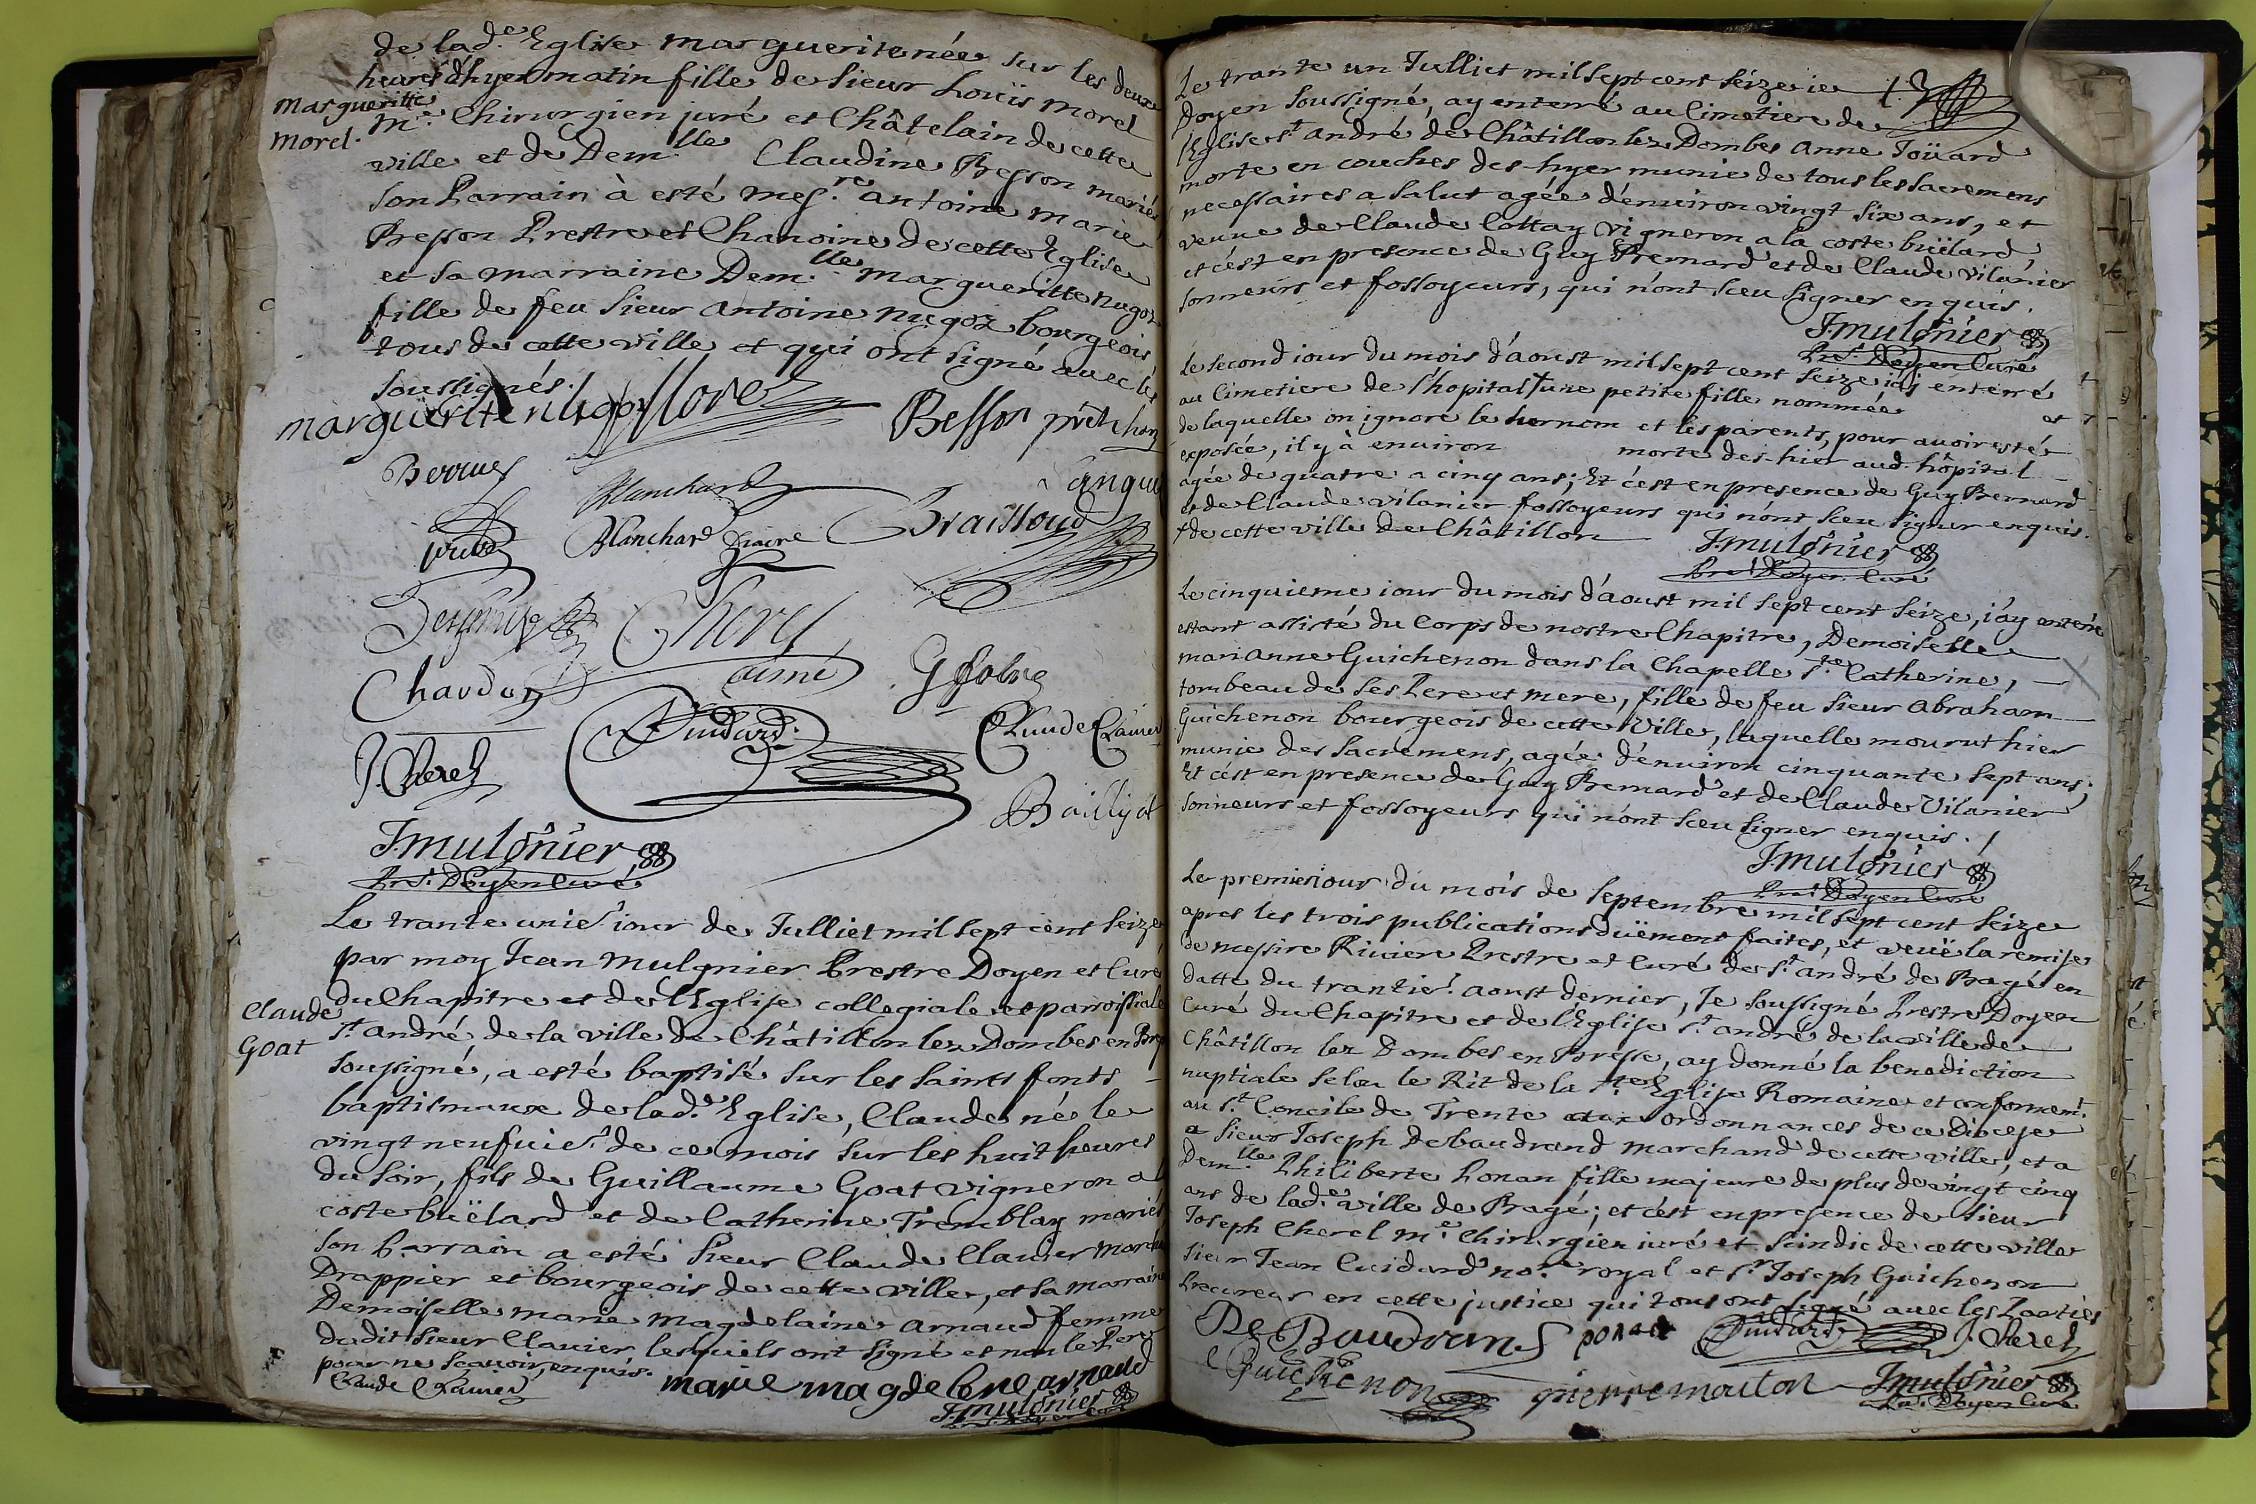 de lad.e Eglise marguerite née sur les deux
heures d'hyer matin fille de sieur Louïs morel
margueritte
morel.
m.e Chirurgien juré et Châtelain de cette
ville et de Dem.lle Claudine Besson mariés
son Parrain à esté mes.re antoine marie
Besson Prestre et Chanoine de cette Eglise
et sa marraine Dem.lle margueritte nugoz
fille de feu sieur antoine nugoz bourgeois
tous de cette ville et qui ont signé avec les
soussignés.
marguerite nugoz Morel Besson
Berruy Blanchard
Blanchard Braissoud
Cherel
Chardon aimé G folug
Cuidard Claude Clauier
J. Cherel
Baillyat
J. mulgnier
Pre.t Doyen Curé
Le trante unie.e iour de Julliet mil sept cent seize
par moy Jean mulgnier Prestre Doyen et Curé
du Chapitre et de l'Eglise collegiale et parroissiale
Claude
Goat
S.t andré de la ville de Châtillon lez Dombes en
soussigné, a esté baptisé sur les saints fonts
baptismaux de lad.e Eglise, Claude né le
vingt neufuie.e de ce mois sur les huit heures
du soir, fils de Guillaume Goat vigneron a la
coste buëlard et de Catherine Tremblay mariés
son parrain a esté sieur Claude Clauier
Drappier et bourgeois de cette ville, et sa marraine
Demoiselle marie magdelaine arnaud femme
dudit sieur Clauier lesquels ont signé et non le Pere
pour ne sçauoir, enquis.
Claude Clauier marie magdelene arnaud
J. mulgnier
Pre.t Doyen curé
Le trante un Julliet mil sept cent seize ie
Doyen soussigné, ay enterré au Cimetiere de
l'Eglise S.t andré de Châtillon lez Dombes anne Joüard
morte en couches des-hyer munie de tous les sacremens
necessaires a salut agée d'enuiron vingt six ans, et
veuue de Claude Cottay vigneron a la coste buëlard,
et c'est en presence de Guy Bernard et de Claude vilanier
sonneurs et fossoyeurs, qui n'ont sceu signer enquis.
J. mulgnier
Pre.t Doyen Curé
Le second iour du mois d'aoust mil sept cent seize iay enterré
au Cimetiere de l'hopital † une petite fille nommée et
de laquelle on ignore le surnom et les parents, pour auoir esté
exposée, il y à enuiron morte des-hier aud. hôpital
agée de quatre a cinq ans; Et c'est en presence de Guy Bernard
et de Claude vilanier fossoyeurs qui n'ont sceu signer enquis.
† de cette ville de Châtillon
J. mulgnier
Pre.t Doyen Curé
Le cinquieme iour du mois d'aoust mil sept cent seize, i'ay enterré
estant assisté du Corps de nostre Chapitre, Demoiselle
marianne Guichenon dans la Chapelle S.te Catherine,
tombeau de ses Pere et mere, fille de feu sieur abraham
Guichenon bourgeois de cette ville, laquelle mourut hier
munie des sacremens, agée d'enuiron cinquante sept ans;
Et c'est en presence de Guy Bernard et de Claude Vilanier
sonneurs et fossoyeurs qui n'ont sceu signer enquis.
J. mulgnier
Pre.t Doyen Curé
Le premier iour du mois de septembre mil sept cent seize
apres les trois publications duëment faites, et veuë la remise
de messire Riviere Prestre et Curé de S.t andré de Bagé en
datte du trantie.e aoust dernier, Je soussigné Prestre Doyen
Curé du Chapitre et de l'Eglise S.t andré de la ville de
Châtillon lez Dombes en Bresse, ay donné la benediction
nuptiale selon le Rit de la S.te Eglise Romaine et conformem.t
au S.t Concile de Trente aux ordonnances de ce Diocese
a sieur Joseph Debaudrand marchand de cette ville, et a
Dem.lle Philiberte Lonan fille majeure de plus de vingt cinq
ans de lad.e ville de Bagé; et c'est en presence de sieur
Joseph Cherel m.e Chirurgien iuré et scindic de cette ville
sieur Jean Cuidard no.re royal et s.r Joseph Guichenon
Procureur en cette justice qui tous ont signé auec les Parties
De Baudrand Cuidard J. Cherel
Guichenon pierre mouton J. mulgnier
Pre.t Doyen Curé